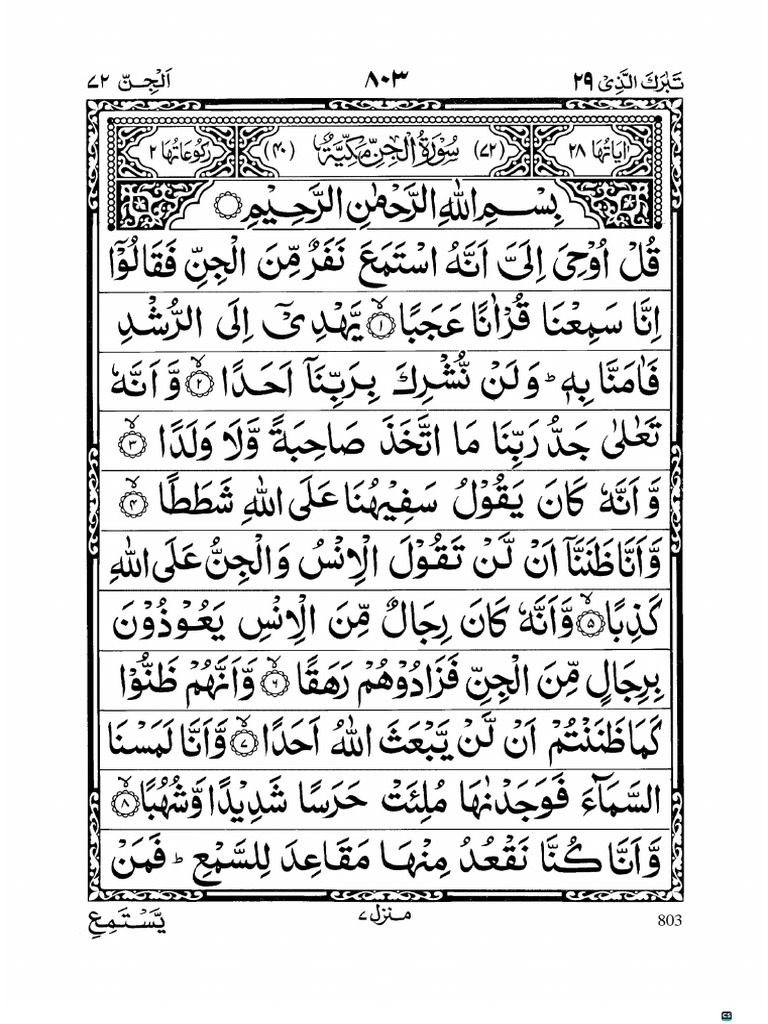 تَبٰرَكَ الَّذِیْ ۲۹ ۸۰۳ اَلْجِنّ ۷۲
اٰیَاتُهَا ۲۸ (۷۲) سُوْرَةُ الْجِنِّ مَكِّیَّةٌ (۴۰) رُكُوْعَاتُهَا ۲
بِسْمِ اللّٰهِ الرَّحْمٰنِ الرَّحِیْمِ
قُلْ اُوْحِیَ اِلَیَّ اَنَّهُ اسْتَمَعَ نَفَرٌ مِّنَ الْجِنِّ فَقَالُوْۤا
اِنَّا سَمِعْنَا قُرْاٰنًا عَجَبًا ۙ۱ یَّهْدِیْۤ اِلَی الرُّشْدِ
فَاٰمَنَّا بِهٖ ؕ وَ لَنْ نُّشْرِكَ بِرَبِّنَاۤ اَحَدًا ۙ۲ وَّ اَنَّهٗ
تَعٰلٰی جَدُّ رَبِّنَا مَا اتَّخَذَ صَاحِبَةً وَّلَا وَلَدًا ۙ۳
وَّ اَنَّهٗ كَانَ یَقُوْلُ سَفِیْهُنَا عَلَی اللّٰهِ شَطَطًا ۙ۴
وَّ اَنَّا ظَنَنَّاۤ اَنْ لَّنْ تَقُوْلَ الْاِنْسُ وَالْجِنُّ عَلَی اللّٰهِ
كَذِبًا ۙ۵ وَّاَنَّهٗ كَانَ رِجَالٌ مِّنَ الْاِنْسِ یَعُوْذُوْنَ
بِرِجَالٍ مِّنَ الْجِنِّ فَزَادُوْهُمْ رَهَقًا ۙ۶ وَّاَنَّهُمْ ظَنُّوْا
كَمَا ظَنَنْتُمْ اَنْ لَّنْ یَّبْعَثَ اللّٰهُ اَحَدًا ۙ۷ وَّاَنَّا لَمَسْنَا
السَّمَآءَ فَوَجَدْنٰهَا مُلِئَتْ حَرَسًا شَدِیْدًا وَّشُهُبًا ۙ۸
وَّ اَنَّا كُنَّا نَقْعُدُ مِنْهَا مَقَاعِدَ لِلسَّمْعِ ؕ فَمَنْ
803 منزل ۷ یَّسْتَمِعِ
CS